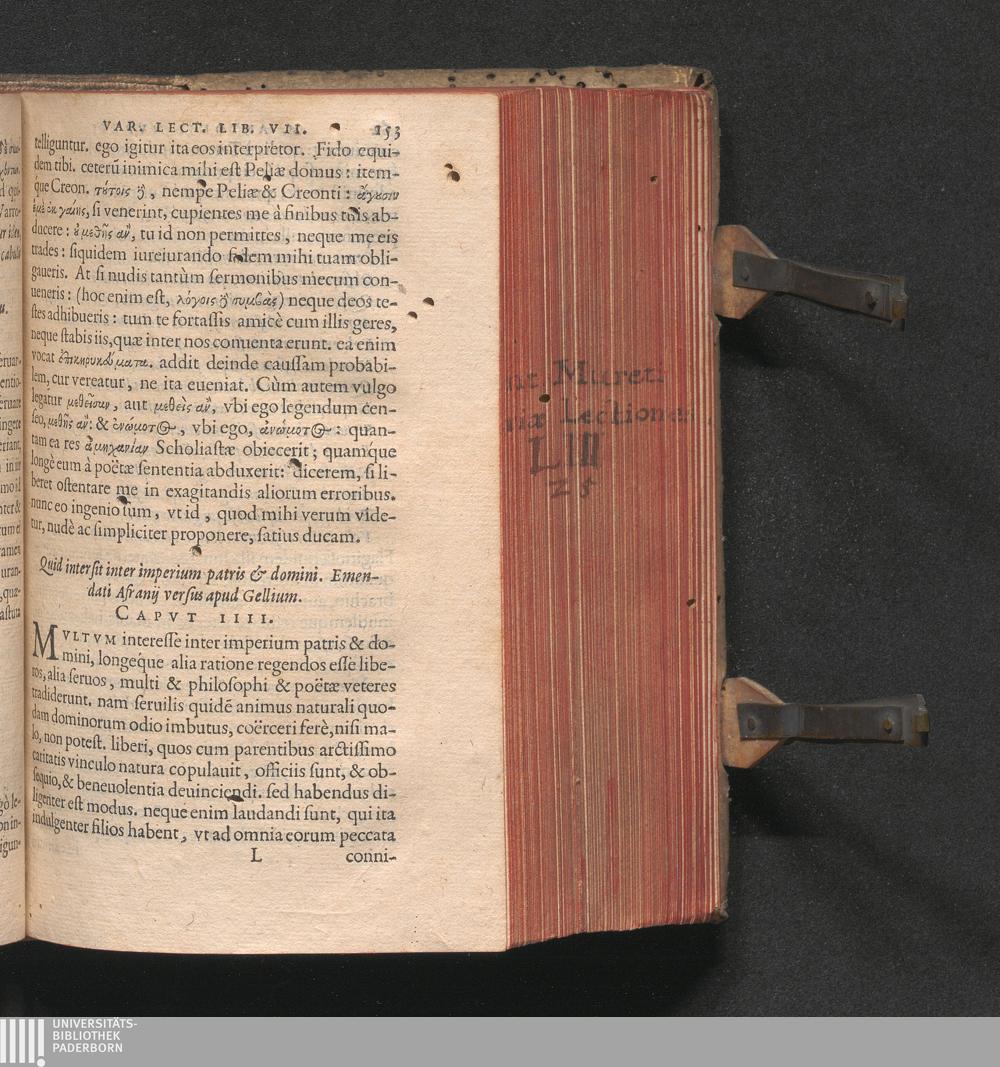 VAR. LECT. LIB. VII. 153
telliguntur. ego igitur ita eos interpretor. Fido equi-
dem tibi. ceterũ inimica mihi est Peliæ domus: item-
que Creon. τύτοις ȣ̓͂, nempe Peliæ & Creonti: ἄγουσιν
ἐμὲ ἐκ γαίης, si venerint, cupientes me à finibus tuis ab-
ducere: ȣ̓ μεθῇς ἂν, tu id non permittes, neque me eis
trades: siquidem iureiurando fidem mihi tuam obli-
gaueris. At si nudis tantùm sermonibus mecum con-
ueneris: (hoc enim est, λόγοις συμβὰς) neque deos te-
stes adhibueris: tum te fortassis amicè cum illis geres,
neque stabis iis, quæ inter nos conuenta erunt. ea enim
vocat ἐπικηρυκεύματα. addit deinde caussam probabi-
lem, cur vereatur, ne ita eueniat. Cùm autem vulgo
legátur μεθεῖσαν, aut μεθεὶς ἂν, vbi ego legendum cen-
seo, μεθῇς ἂν: & ἐνώμοτος, vbi ego, ἀνώμοτος: quan-
tam ea res ἀμηχανίαν Scholiastæ obiecerit; quamque
longè eum à poëtæ sententia abduxerit: dicerem, si li-
beret ostentare me in exagitandis aliorum erroribus.
nunc eo ingenio sum, vt id, quod mihi verum vide-
tur, nudè ac simpliciter proponere, satius ducam.
Quid intersit inter imperium patris & domini. Emen-
dati Afranij versus apud Gellium.
CAPVT IIII.
MVLTVM interesse inter imperium patris & do-
mini, longeque alia ratione regendos esse libe-
ros, alia seruos, multi & philosophi & poëtæ veteres
tradiderunt. nam seruilis quidẽ animus naturali quo-
dam dominorum odio imbutus, coërceri ferè, nisi ma-
lo, non potest. liberi, quos cum parentibus arctissimo
caritatis vinculo natura copulauit, officiis sunt, & ob-
sequio, & beneuolentia deuinciendi. sed habendus di-
ligenter est modus. neque enim laudandi sunt, qui ita
indulgenter filios habent, vt ad omnia eorum peccata
L conni-
Mureti
Lectiones
LIII
25
UNIVERSITÄTS-
BIBLIOTHEK
PADERBORN